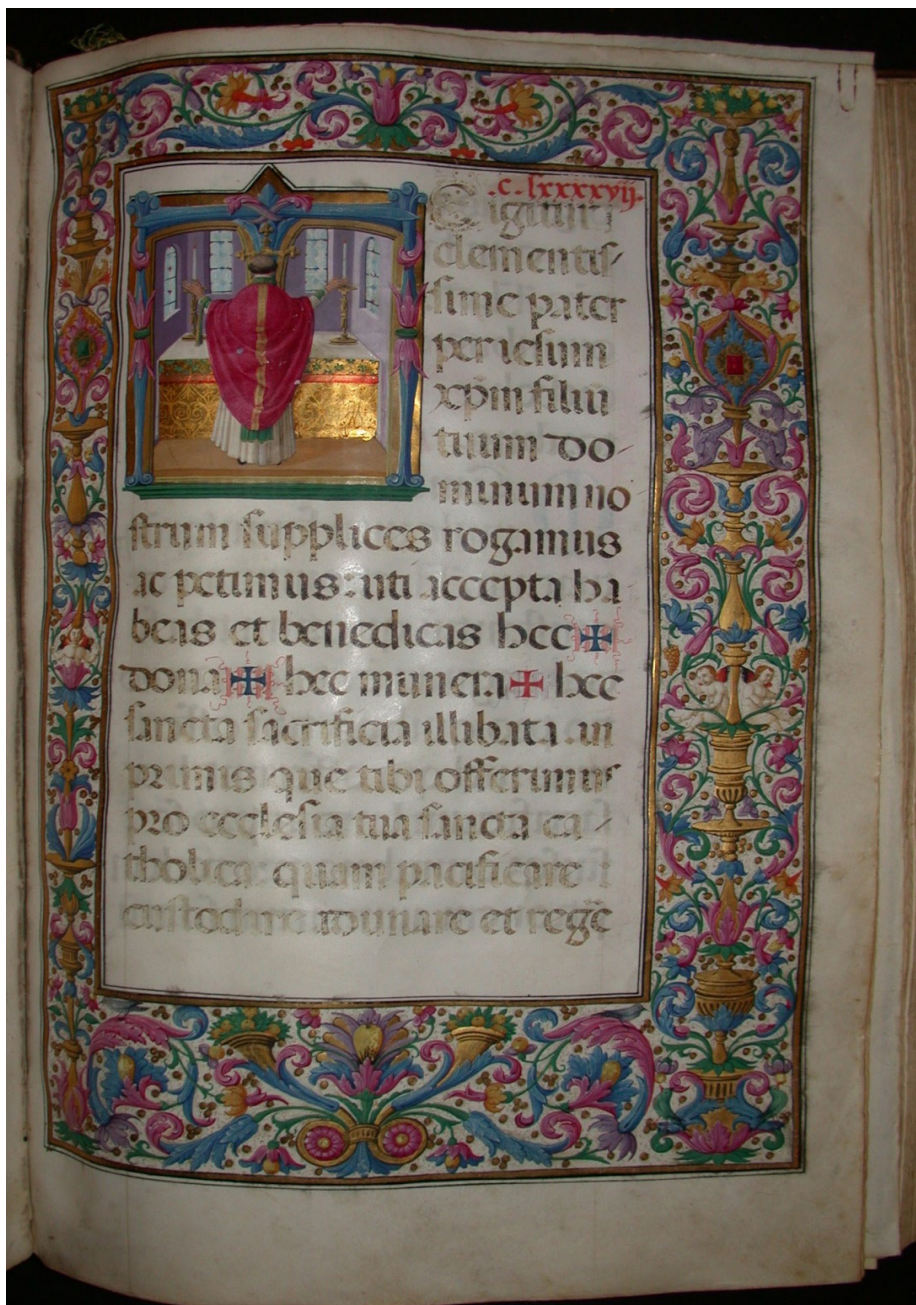 .c.lxxxxvij.
E igitur
clementis/
sime pater
per iesum
xp̄m filiū
tuum do/
minum no
strum supplices rogamus
ac petimus: uti accepta ha
beas et benedicas hec ✠
dona ✠ hec munera ✠ hec
sancta sacrificia illibata. in
primis que tibi offerimus
pro ecclesia tua sancta ca/
tholica quam pacificare
custodire adunare et regē